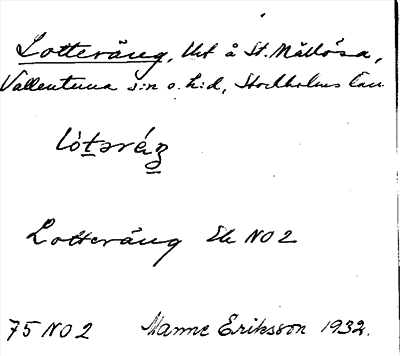 Lotteräng, tht å St. Mällösa,
Vallentuna s:n o. h:d, Stockholms län
lòt̲əréŋ̲
Lotteräng Ek NO 2
75 NO 2 Manne Eriksson 1932.